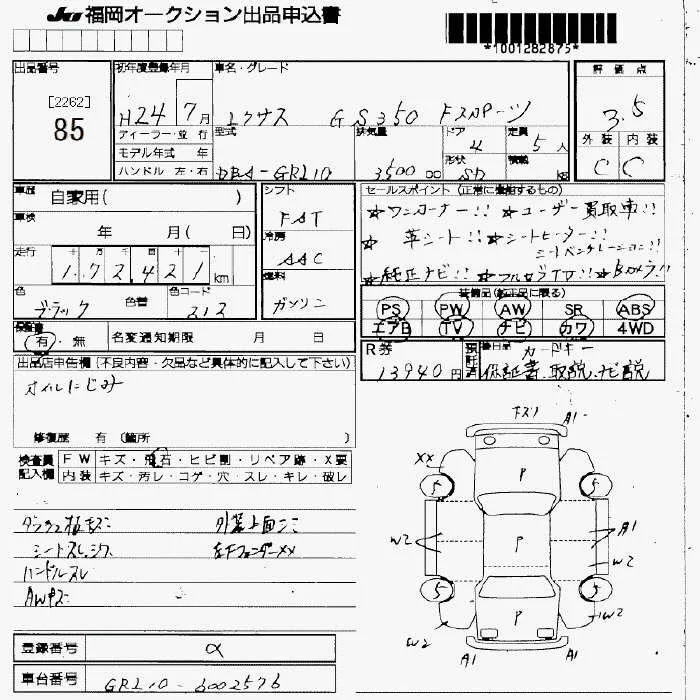 JU 福岡オークション出品申込書
*1001282875*
出品番号
[2262]
85
初年度登録年月
H24年 7月
ディーラー・並行
モデル年式 年
ハンドル 左・右
車名・グレード
レクサス GS350 Fスポーツ
型式
DBA-GRL10
排気量
3500 cc
ドア
4
形状
SD
定員
5人
積載
kg
評価点
3.5
外装 内装
C C
車歴
自家用( )
車検
年 月( 日)
走行
172421km
色
ブラック
色替
色コード
212
シフト
FAT
冷房
AAC
燃料
ガソリン
セールスポイント (正常に機能するもの)
☆ワンオーナー!! ☆ユーザー買取車!!
☆革シート!! ☆シートヒーター!!
シートベンチレーション!!
☆純正ナビ!! ☆フルセグTV!! ☆Bカメラ!!
装備品(純正品に限る)
PS PW AW SR ABS
エアB TV ナビ カワ 4WD
有・無
名変通知期限 月 日
R券
13940円
預託済
後日品 カードキー
保証書、取説、ナビ説
出品店申告欄(不良内容・欠品など具体的に記入して下さい)
オイルにじみ
修復歴 有(箇所 )
検査員記入欄
FW キズ・飛石・ヒビ割・リペア跡・X要
内装 キズ・汚レ・コゲ・穴・スレ・キレ・破レ
シートスレ、シワ
左Fフェンダー XX
ハンドルスレ
AWキズ
登録番号 α
車台番号 GRL10-6002576
キズ1 A1
XX
5 P 5
W2 P A1
W2
5 P 5
W2 W2
A1 A1